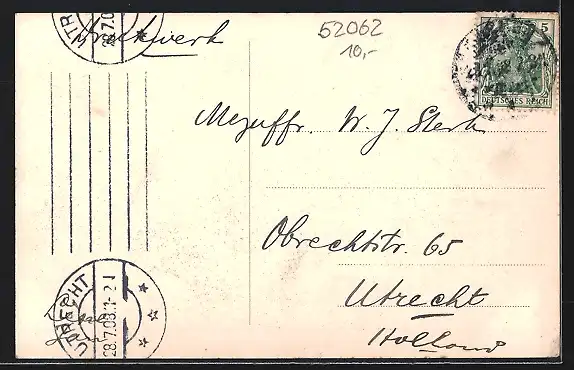 Drukwerk
52062
10,-
5
DEUTSCHES REICH
Mejuffr. W. J. Sterk
Obrechtstr. 65
Utrecht
Holland
UTRECHT
28.7.08.1-2 N
UTR